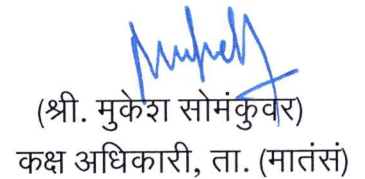 (श्री. मुकेश सोमंकुवर)
कक्ष अधिकारी, ता. (मातंसं)